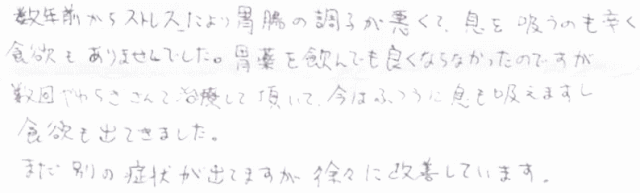 数年前からストレスにより胃腸の調子が悪くて、息を吸うのも辛く
食欲もありませんでした。胃薬を飲んでも良くならなかったのですが
数回やわらぎさんで治療して頂いて、今はふつうに息も吸えますし
食欲も出てきました。
まだ別の症状が出てますが徐々に改善しています。